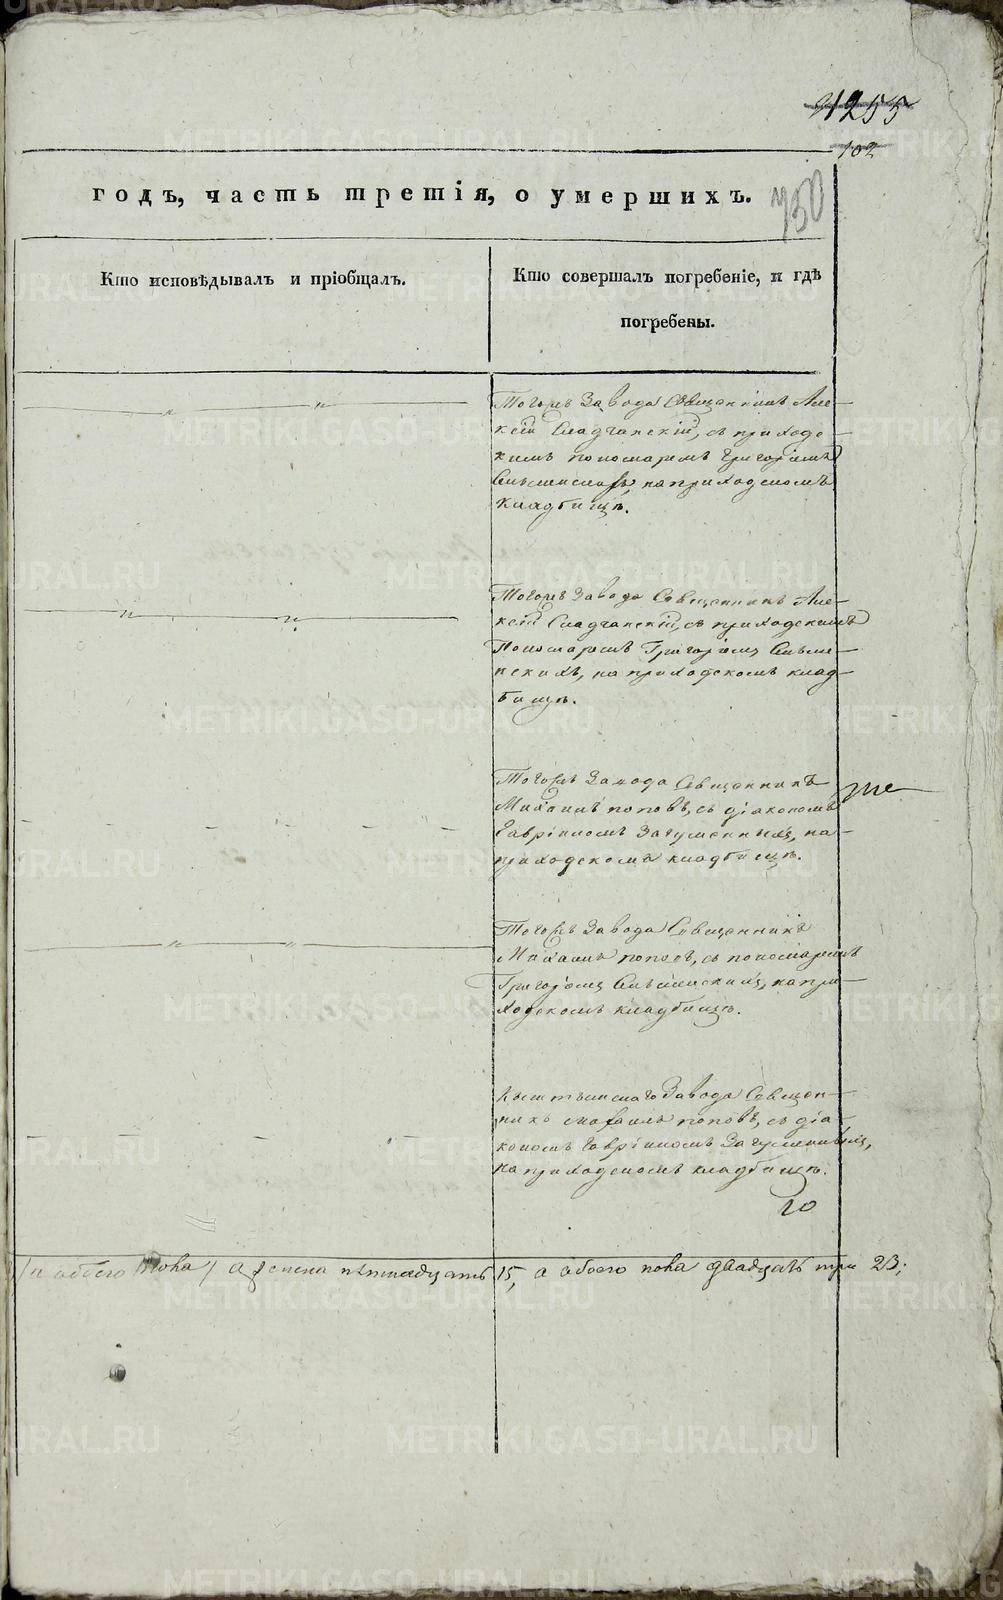 1255
102
годъ, часть третія, о умершихъ.
750
Кто исповѣдывалъ и пріобщалъ.
Кто совершалъ погребеніе, и гдѣ
погребены.
Тогожъ Завода Священникъ Але-
ксій Сладчанскій, съ приходс-
кимъ пономаремъ Григоріемъ
на приходскомъ
кладбищѣ.
Тогожъ Завода Священникъ Але-
ксій Сладчанскій, съ приходскимъ
Пономаремъ Григоріемъ
на приходскомъ клад-
бищѣ.
Тогожъ Завода Священникъ
Михаилъ поповъ, съ діакономъ
Гавріиломъ Загуменныхъ, на
приходскомъ кладбищѣ.
Тогожъ Завода Священникъ
Михаилъ поповъ, съ пономаремъ
Григоріемъ на при-
ходскомъ кладбищѣ.
Кыштымскаго Завода Священ-
никъ Михаилъ поповъ, съ діа-
кономъ Гавріиломъ Загуменныхъ,
на приходскомъ кладбищѣ.
а обоего пола / а женска пятнадцать 15, а обоего пола двадцать три 23;
METRIKI.GASO-URAL.RU